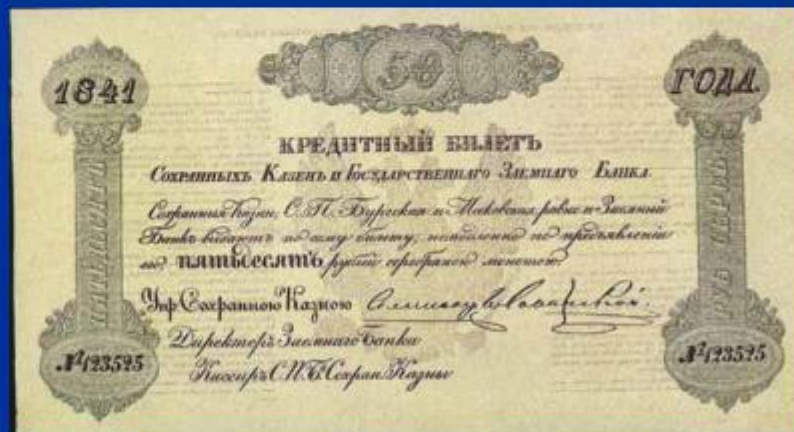 50
1841
ГОДА.
КРЕДИТНЫЙ БИЛЕТЪ
Сохранныхъ Казенъ и Государственнаго Заемнаго Банка
Сохранныя Казны, С. П. Бургская и Московская, равно и Заемный
Банкъ выдаютъ по сему билету, немедленно по предъявленіи
его, пятьдесятъ рублей серебряною монетою.
ПЯТЬДЕСЯТЪ
РУБ. СЕРЕБ.
Упр Сохранною Казною
Директоръ Заемнаго Банка
Кассиръ С. П. Б. Сохран Казны
№ 123525
№ 123525